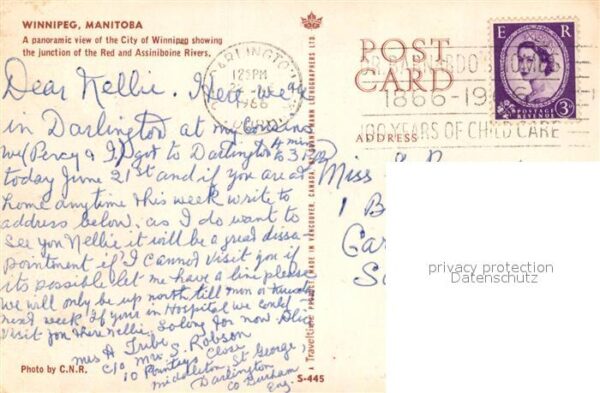 WINNIPEG, MANITOBA
A panoramic view of the City of Winnipeg showing
the junction of the Red and Assiniboine Rivers.
Dear Nellie. Here we are
in Darlington at my cousins
we (Percy & I) got to Darlington 4 mins to 3 P
today June 21st and if you are at
home anytime this week write to
address below. as I do want to
see you Nellie it will be a great dissa-
pointment if I cannot visit you if
its possible let me have a line please
we will only be up north till mon or tuesday
next week. If youre in Hospital we could
visit you there Nellie. So long for now
mrs A Tribe
c/o Mrs S. Robson
10 Close
middleton St George,
Darlington
Co Durham
Eng.
Photo by C.N.R.
S-445
a Traveltime PRODUCT MADE IN VANCOUVER, CANADA, BY GRANT-MANN LITHOGRAPHERS LTD.
DARLINGTON
12 15 PM
1966
CO. DURHAM
POST
CARD
ADDRESS
DR BARNARDO'S HOMES
1866-1966
100 YEARS OF CHILD CARE
E R
POSTAGE
REVENUE
3D
Miss
1 B
Car
privacy protection
Datenschutz